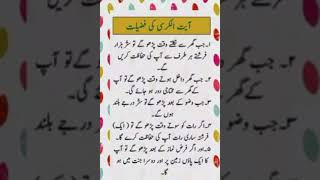 آیت الکرسی کی فضیلت
۱۔جب گھر سے نکلتے وقت پڑھو گے تو ستر ہزار
فرشتے ہر طرف سے آپ کی حفاظت کریں
گے۔
۲۔ جب گھر داخل ہوتے وقت پڑھو گے تو آپ
کے گھر سے محتاجی دور ہو جائے گی۔
۳۔جب وضو کے بعد پڑھو گے تو ستر درجے بلند
ہوں گے۔
۴۔اگر رات کو سوتے وقت پڑھو گے تو (ایک)
فرشتہ ساری رات آپ کی حفاظت کرے گا۔
۵۔اور اگر فرض نماز کے بعد پڑھو گے تو آپ
کا ایک پاؤں زمین پر اور دوسرا جنت میں ہو
گا۔